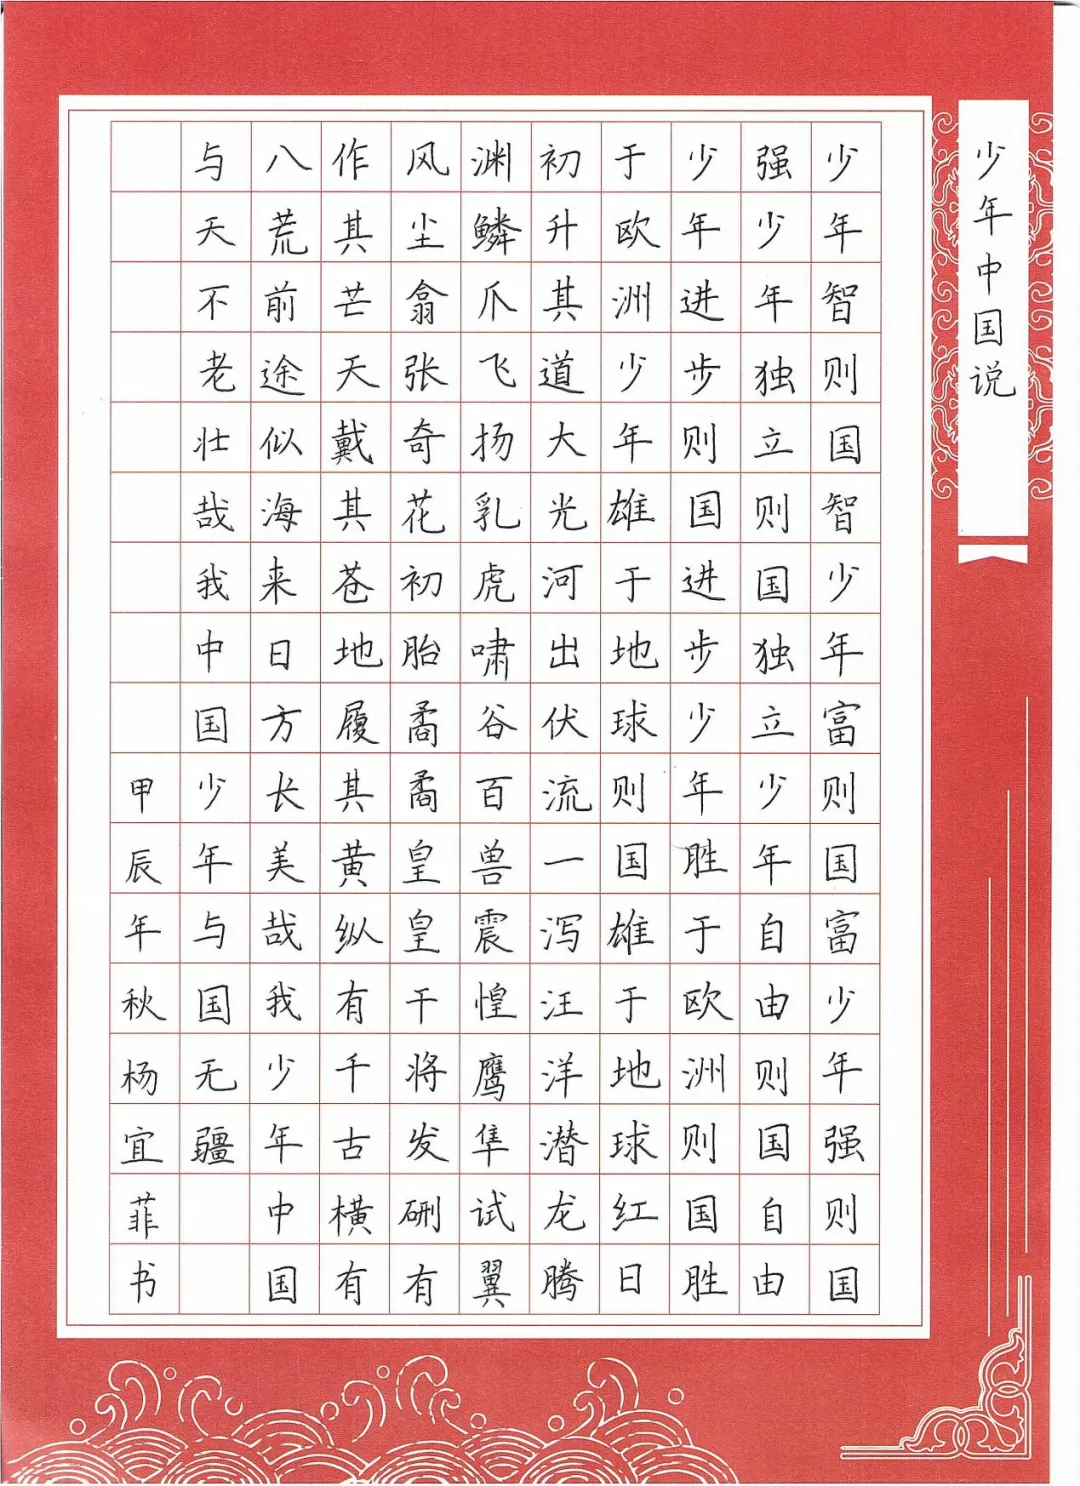 少年中国说
少年智则国智少年富则国富少年强则国
强少年独立则国独立少年自由则国自由
少年进步则国进步少年胜欧洲则国胜
于欧洲少年雄于地球则国雄于地球红日
初升其道大光河出伏流一泻汪洋潜龙腾
渊鳞爪飞扬乳虎啸谷百兽震惶鹰隼试翼
风尘翕张奇花初胎矞矞皇皇干将发硎有
作其芒天戴其苍地履其黄纵有千古横有
八荒前途似海来日方长美哉我少年中国
与天不老壮哉我中国少年与国无疆
甲辰年秋杨宜菲书